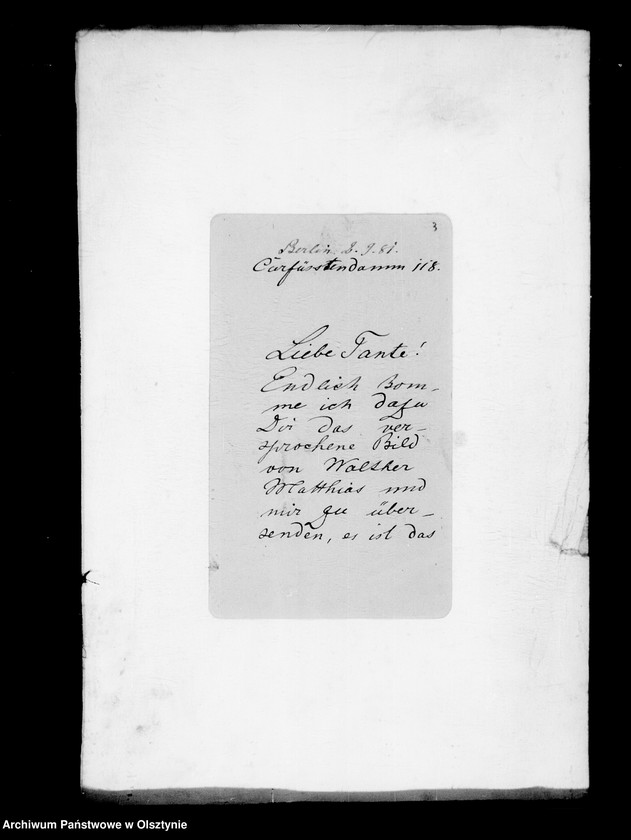 3
Berlin 2. 9. 81.
Curfürstendamm 118.
Liebe Tante!
Endlich kom-
me ich dazu
Dir das ver-
sprochene Bild
von Walther
Matthias und
mir zu über-
senden, es ist das
Archiwum Państwowe w Olsztynie